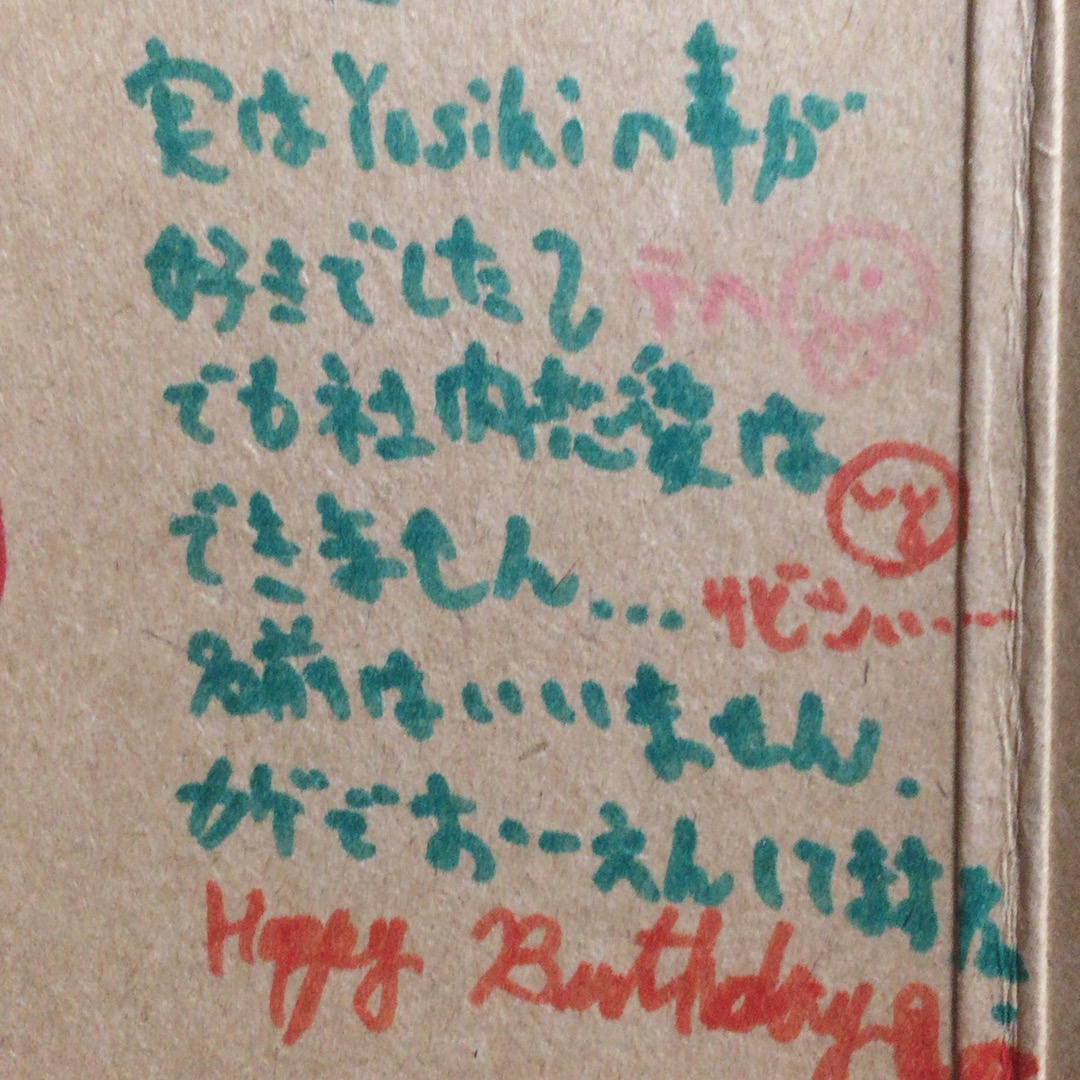 実はYosikiの事が
好きでした テヘ
でも社内恋愛は
できません... サビシい...
名前はいいません.
かげでおーえんしてますね
Happy Birthday